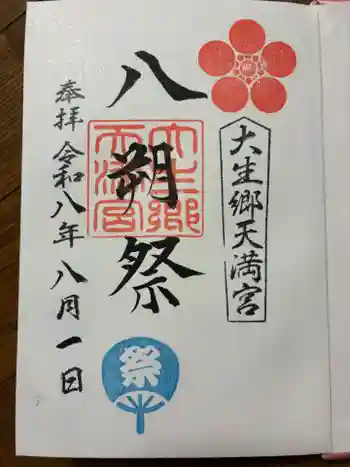 大生郷天満宮
八朔祭
大生郷
天満宮
奉拝 令和八年 八月一日
祭